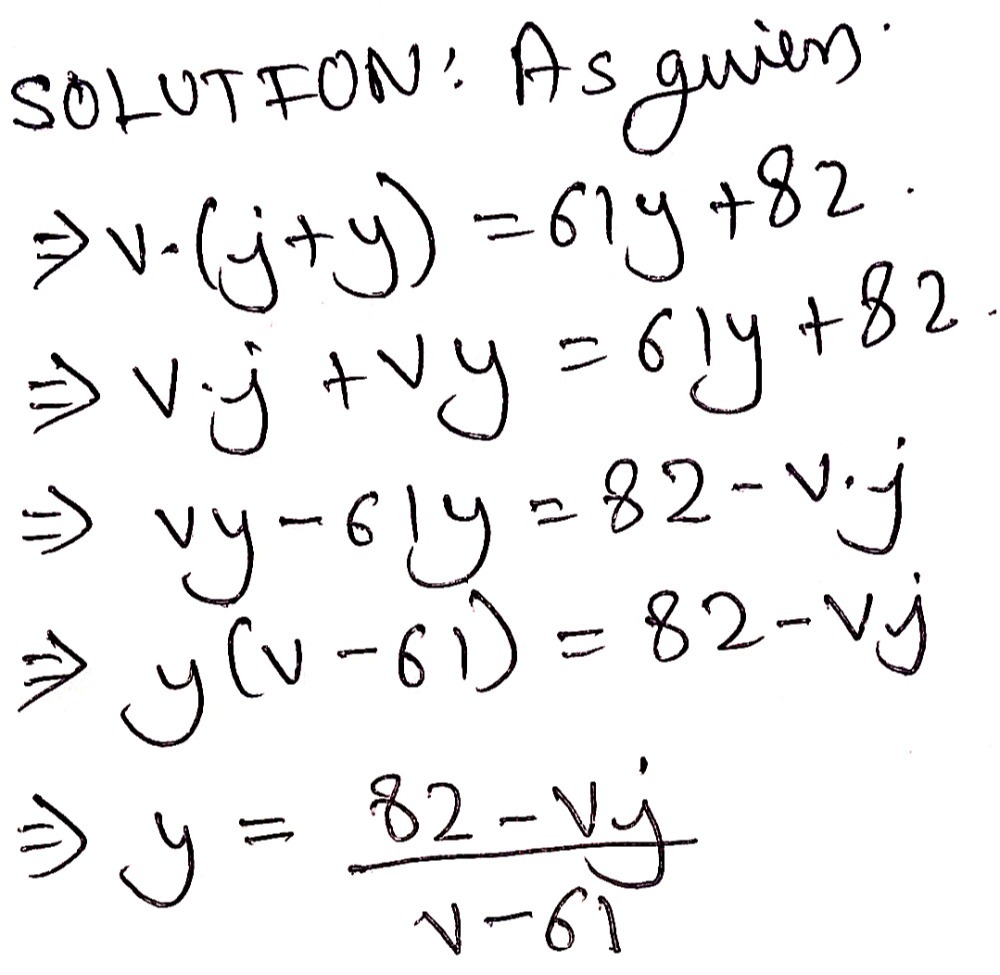 SOLUTION: As given
⇒ v·(j+y) = 61y + 82.
⇒ v·j + vy = 61y + 82.
⇒ vy - 61y = 82 - v·j
⇒ y(v - 61) = 82 - vj
⇒ y = \frac{82 - vj}{v - 61}